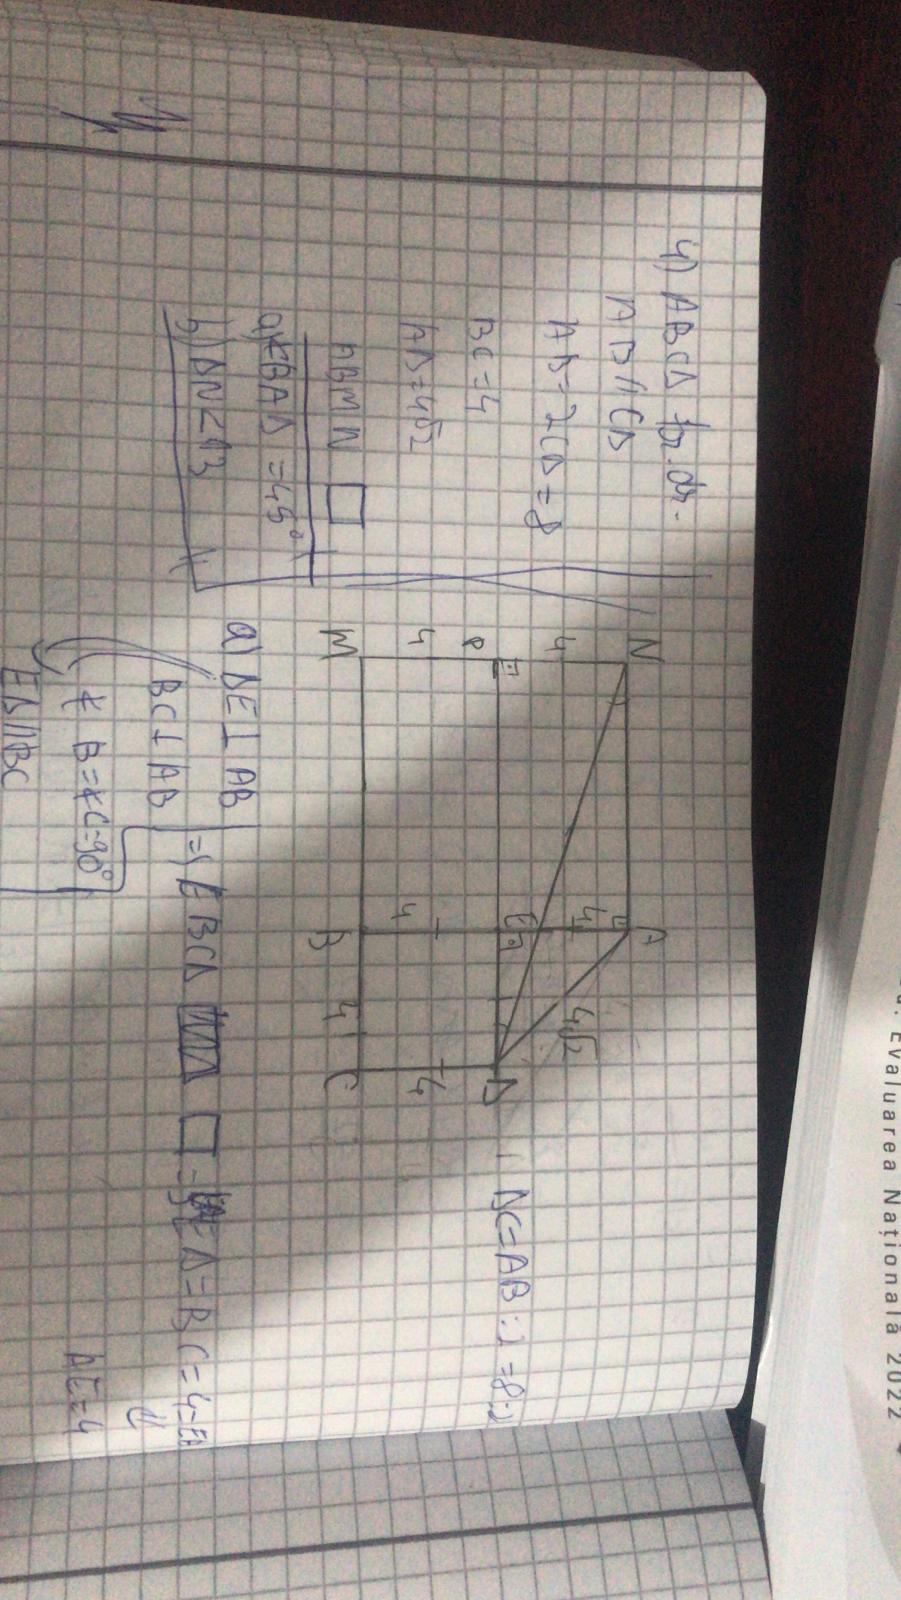 Evaluarea Națională 2022
4) ABCD tr. dr.
AB∥CD
AB=2CD=8
BC=4
AD=4√2
ABMN □
a) ∢BAD =45°
b) DN<13
N A
4 4 4√2
E D
P
4 4 4
M B 4 C
DC=AB:2=8:2
a) DE⊥AB
BC⊥AB
∢ B=∢C=90°
ED∥BC
=> EBCD □ => ED=BC=4=EB
⇓
AE=4